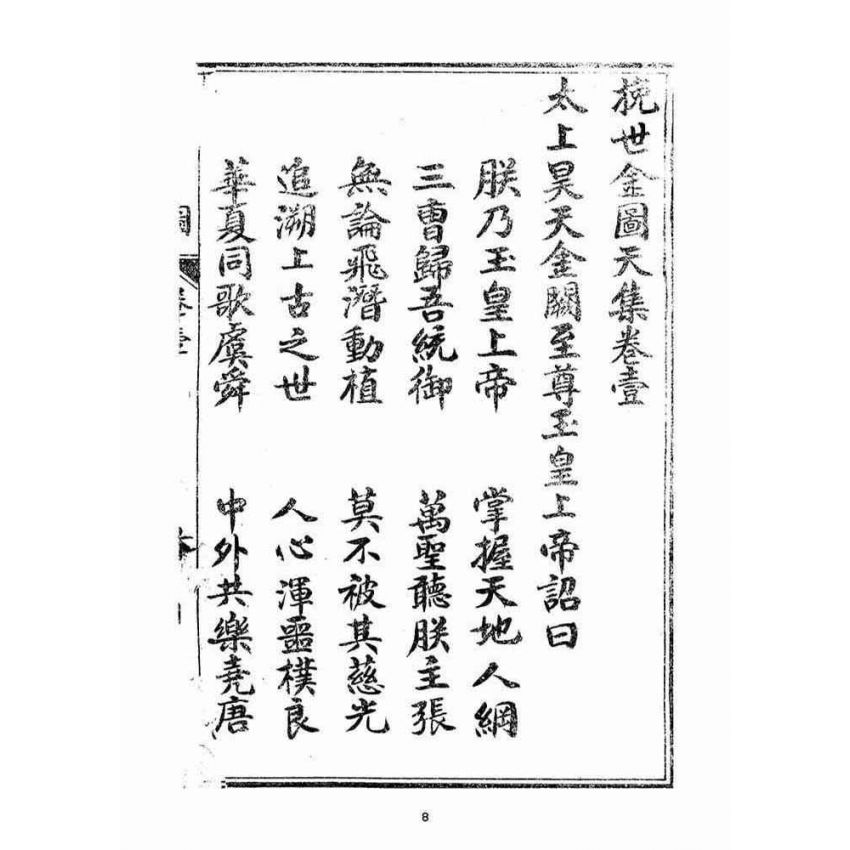 挽世金圖天集卷壹
太上昊天金闕至尊玉皇上帝詔曰
朕乃玉皇上帝 掌握天地人綱
三曹歸吾統御 萬聖聽朕主張
無論飛潛動植 莫不被其慈光
追溯上古之世 人心渾噩樸良
華夏同歌虞舜 中外共樂堯唐
卷壹
8